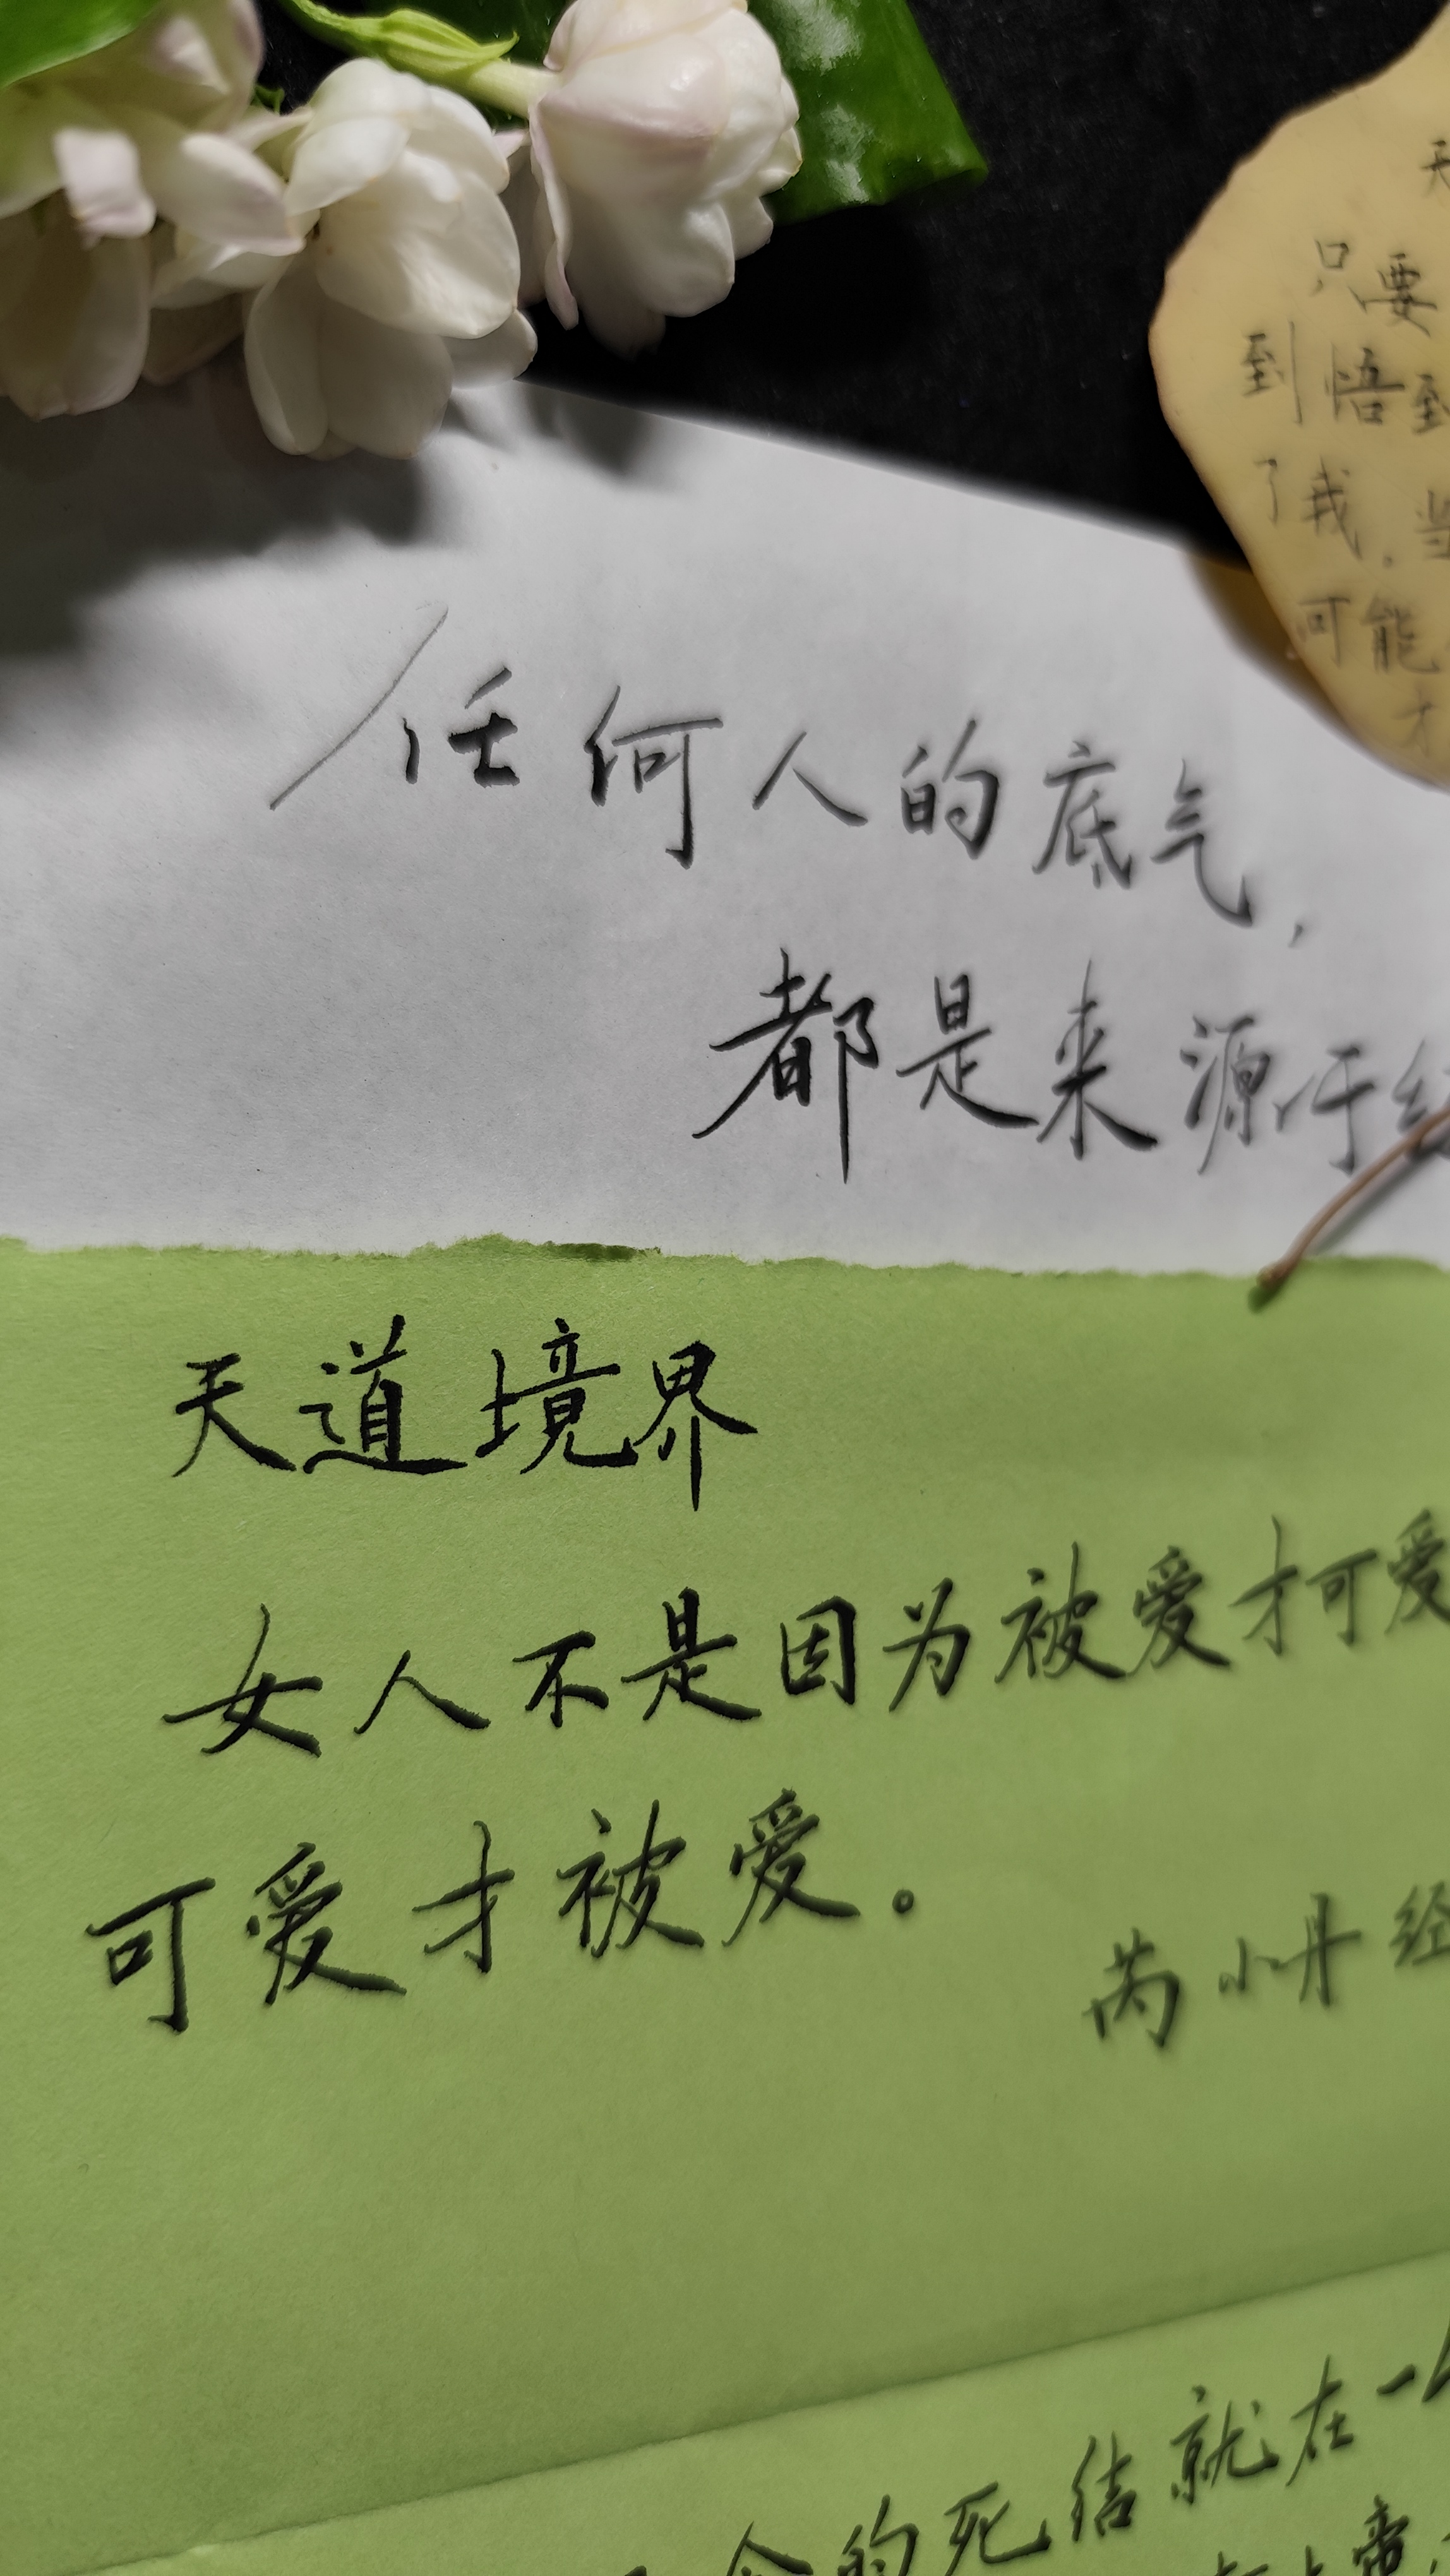 只要
到悟到
了我.当
可能
任何人的底气,
都是来源于
天道境界
女人不是因为被爱才可爱
可爱才被爱。
芮小丹经
的死结就在一